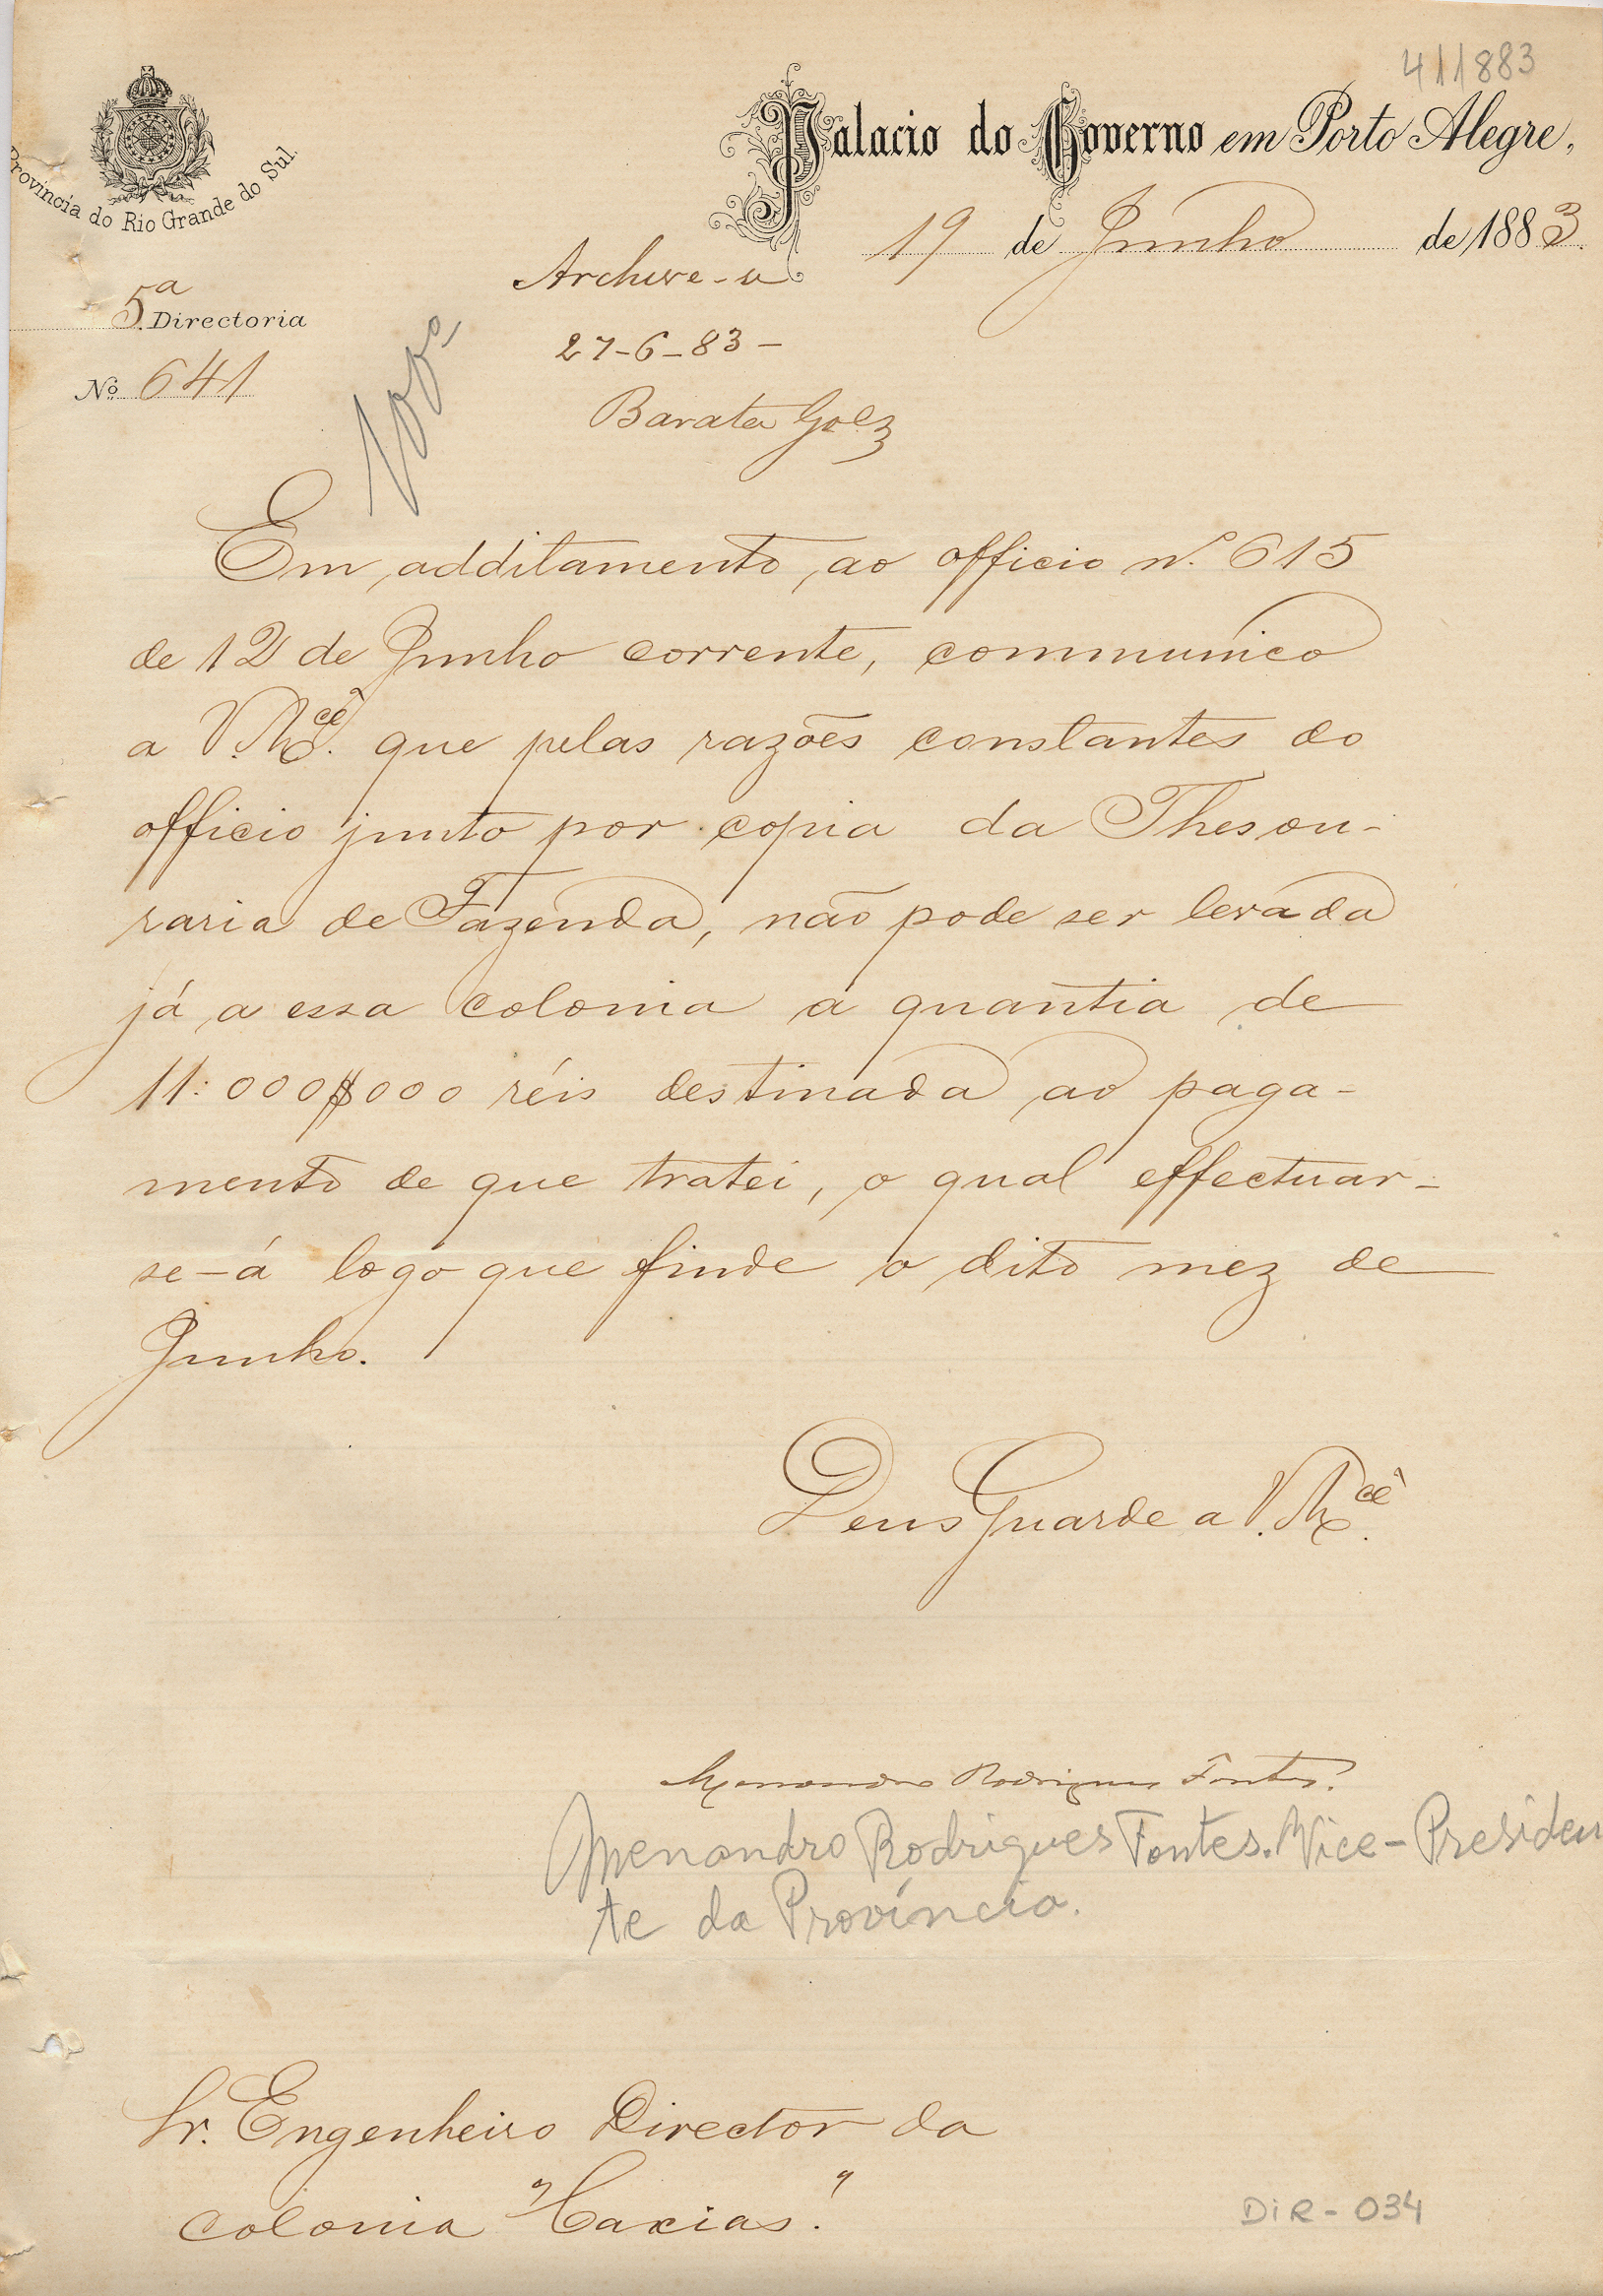 411883
Palacio do Governo em Porto Alegre,
Provincia do Rio Grande do Sul.
19 de Junho de 1883.
5ª Directoria
Nº 641
Archive-se
27-6-83-
Barata Goes
Em additamento ao officio nº. 615
de 12 de Junho corrente, communico
a V. Mcê. que pelas razões constantes do
officio junto por copia da Thesou-
raria de Fazenda, não pode ser levada
já a essa colonia a quantia de
11:000$000 réis destinada ao paga-
mento de que tratei, o qual effectuar-
se-á logo que finde o dito mez de
Junho.
Deus Guarde a V. Mcê.
Menandro Rodrigues Fontes.
Menandro Rodrigues Fontes. Vice-Presiden
te da Província.
Sr. Engenheiro Director da
colonia "Caxias".
DIR-034